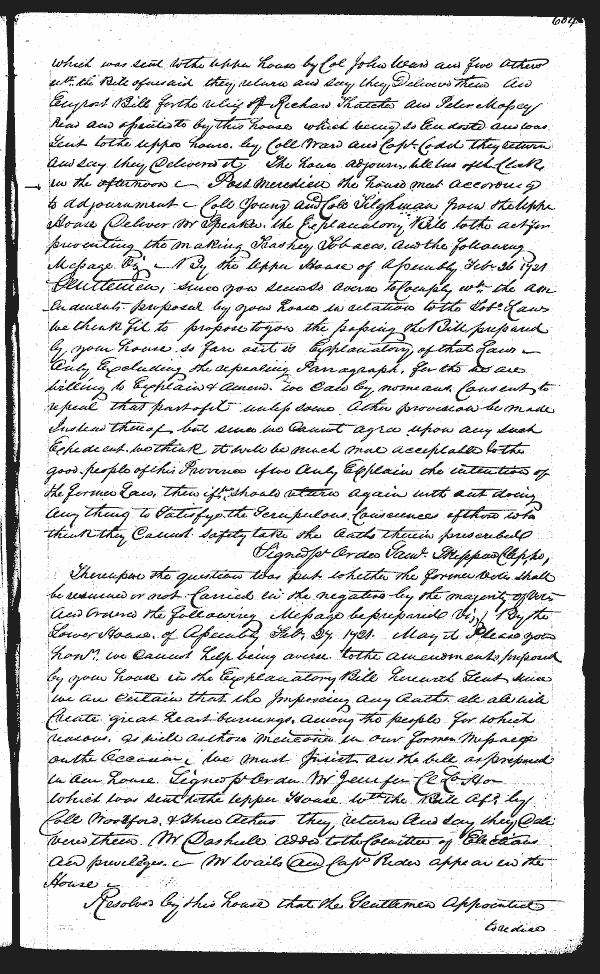 604
which was sent to the upper house by Col John Ward and five others
wth the Bill aforesaid they return and say they Delivered them And
Engrost Bill for the relief of Richard Thatcher and Peter Massey
Read and assented to by this house which being so Endorsed and was
Sent to the upper house by Coll Ward and Capt Codd they return
and say they Delivered it The house adjourns till two of the Clock
in the afternoon Post Meridiem the house met according
to adjournment Coll Young and Coll Tilghman from the Uppr
House Deliver Mr Speaker the Explanatory Bill to the act for
preventing the making Trashey Tobacco And the following
Message Vizt By the Upper House of Assembly Feb. 26 1721
Gentlemen, since you seem so averse to Comply wth the am
endments proposed by your house in relation to the Tobo Laws
we think fit to propose to you the passing the Bill prepared
by your house so farr as it is Explanatory of that Law
Only Excluding the repealing Parragraph for tho we are
willing to Explain & Amend we can by no means Consent to
repeal that part of it unless some other provision be made
Instead thereof, but since we Cannot agree upon any such
Expedient we think it will be much more acceptable to the
good people of this Province if we Only Explain the intention of
the former Law, then if we should return again without doing
any thing to Satisfye the Scrupulous Consciences of those who
think they Cannot safely take the Oaths therein prescribed
Signed pr Order Saml Skippon Cl upho,
Thereupon the question was put whether the former votes shall
be resumed or not Carried in the negative by the majority of Votes
And ordered the following Message be prepared Vizt By the
Lower House of Assembly Feb. 27 1721. May it Please your
honrs, we Cannot help being averse to the amendments proposed
by your house in the Explanatory Bill herewith Sent since
we are certain that the Imposing any Oaths at all will
Create great heart burnings among the people for which
reasons as well as those mencioned in our former Message
on the Occasion we must Insist on the bill as prepared
in our house Signed pr Order Mr Jenifer Cl Lo Ho
which was sent to the upper House wth the Bill afd by
Coll Woodford & three others they return and say they Deli
vered them. Mr Dashiell added to the Comittee of Elections
and priviledges. Mr Wails and Capt Rider appear in the
House
Resolved by this house that the Gentlemen Appointed
to revise